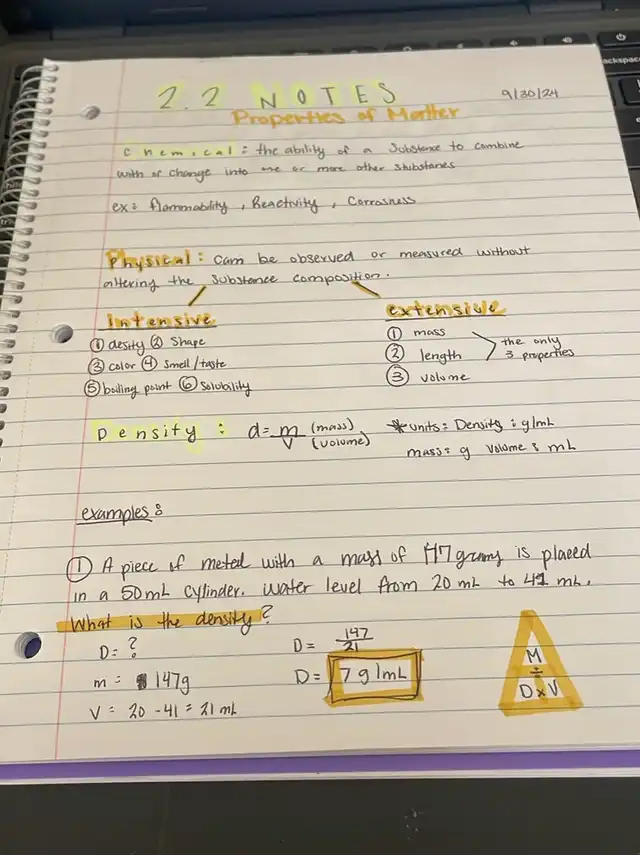 2.2 NOTES
9/30/24
Properties of Matter
Chemical: the ability of a substance to combine
with or change into one or more other substanes
ex: flammability, Reactivity, Corrosness
Physical: can be observed or measured without
altering the substance composition.
Intensive
① desity ② Shape
③ color ④ Smell/taste
⑤ boiling point ⑥ Solubility
extensive
① mass
② length
③ volume
the only
3 properties
Density: d = m (mass)
V (volume)
*units: Density: g/mL
mass: g Volume: mL
examples:
① A piece of metal with a mass of 147 grams is placed
in a 50mL cylinder. Water level from 20 mL to 41 mL.
What is the density?
D = ?
m = 147g
V = 20 - 41 = 21 mL
D = 147
21
D = 7 g/mL
M
÷
D x V
backspace